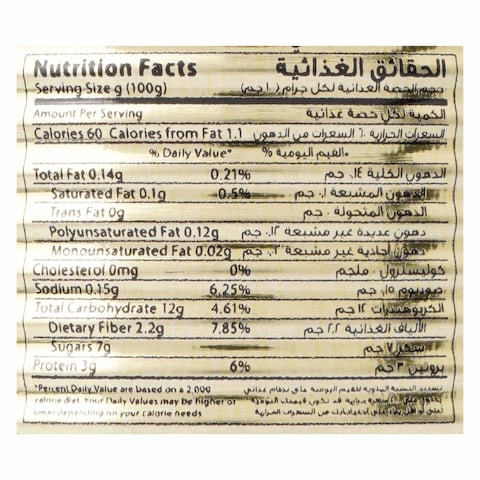 Nutrition Facts الحقائق الغذائية
Serving Size g (100g) حجم الحصة الغذائية لكل جرام (١٠٠جم)
Amount Per Serving الكمية لكل حصة غذائية
Calories 60 Calories from Fat 1.1 السعرات الحرارية ٦٠ السعرات من الدهون
% Daily Value* القيم اليومية %*
Total Fat 0.14g 0.21% الدهون الكلية ٠.١٤ جم
Saturated Fat 0.1g 0.5% الدهون المشبعة ٠.١ جم
Trans Fat 0g الدهون المتحولة ٠ جم
Polyunsaturated Fat 0.12g دهون عديدة غير مشبعة ٠.١٢ جم
Monounsaturated Fat 0.02g دهون أحادية غير مشبعة جم
Cholesterol 0mg 0% كوليسترول ٠ ملجم
Sodium 0.15g 6.25% صوديوم ٠.١٥ جم
Total Carbohydrate 12g 4.61% الكربوهيدرات ١٢ جم
Dietary Fiber 2.2g 7.85% الألياف الغذائية ٢.٢ جم
Sugars 7g سكر ٧ جم
Protein 3g 6% بروتين ٣ جم
*Percent Daily Value are based on a 2,000
calorie diet. Your Daily Values may be higher or
lower depending on your calorie needs